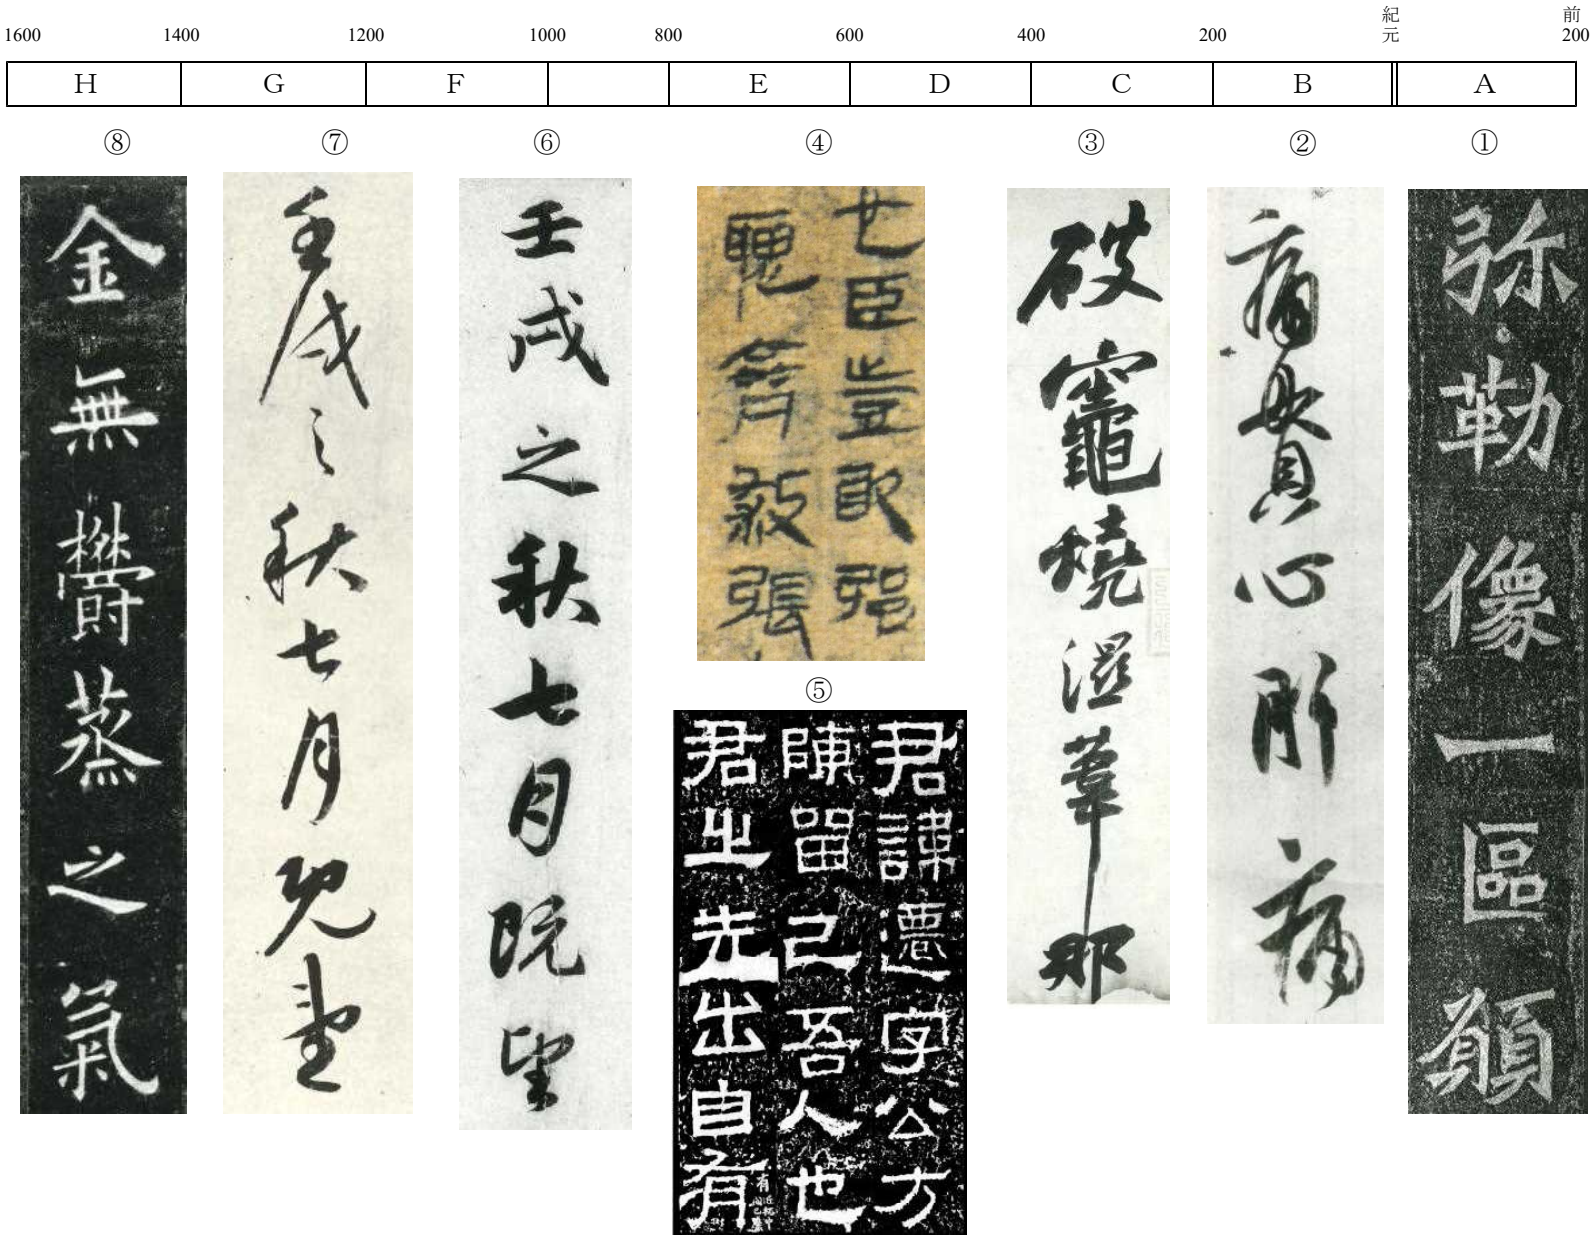 紀元 前
1600 1400 1200 1000 800 600 400 200 200
H G F E D C B A
⑧ ⑦ ⑥ ④ ③ ② ①
弥勒像一區願
痛貫心肝痛
破竈燒濕葦那
也臣豈敢強
齊殺張
⑤
君諱遷字公方
陳留己吾人也
君之先出自有
壬戌之秋七月既望
壬戌之秋七月既望
金無鬱蒸之氣